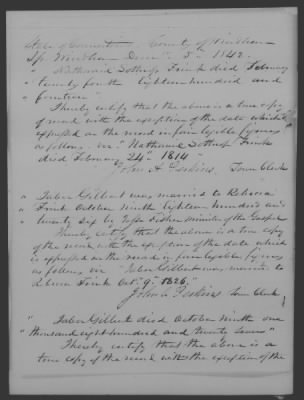 State of Connecticut County of Windham
Windham Decr 5th 1842.
" Nathaniel Frink died February
" twenty fourth eighteen hundred and
" fourteen
I hereby certify that the above is a true copy
of record with the exception of the date which is
expressed on the record in fair legible figures
as follows. viz " Nathaniel Frink
died February 24th 1814"
John A Perkins, Town Clerk
" Jabez Gilbert was married to Rebecca
" Frink October ninth Eighteen hundred and
" twenty six by Fisher minister of the Gospel
I hereby certify that the above is a true copy
of the record with the exception of the date which
is expressed on the record in fair legible figures
as follows viz "Jabez Gilbert was married to
Frink Oct. 9th 1826."
John A Perkins Town Clerk
" Jabez Gilbert died October Ninth one
" thousand eight hundred and twenty
I hereby certify that the above is a
true copy of the record with the exception of the